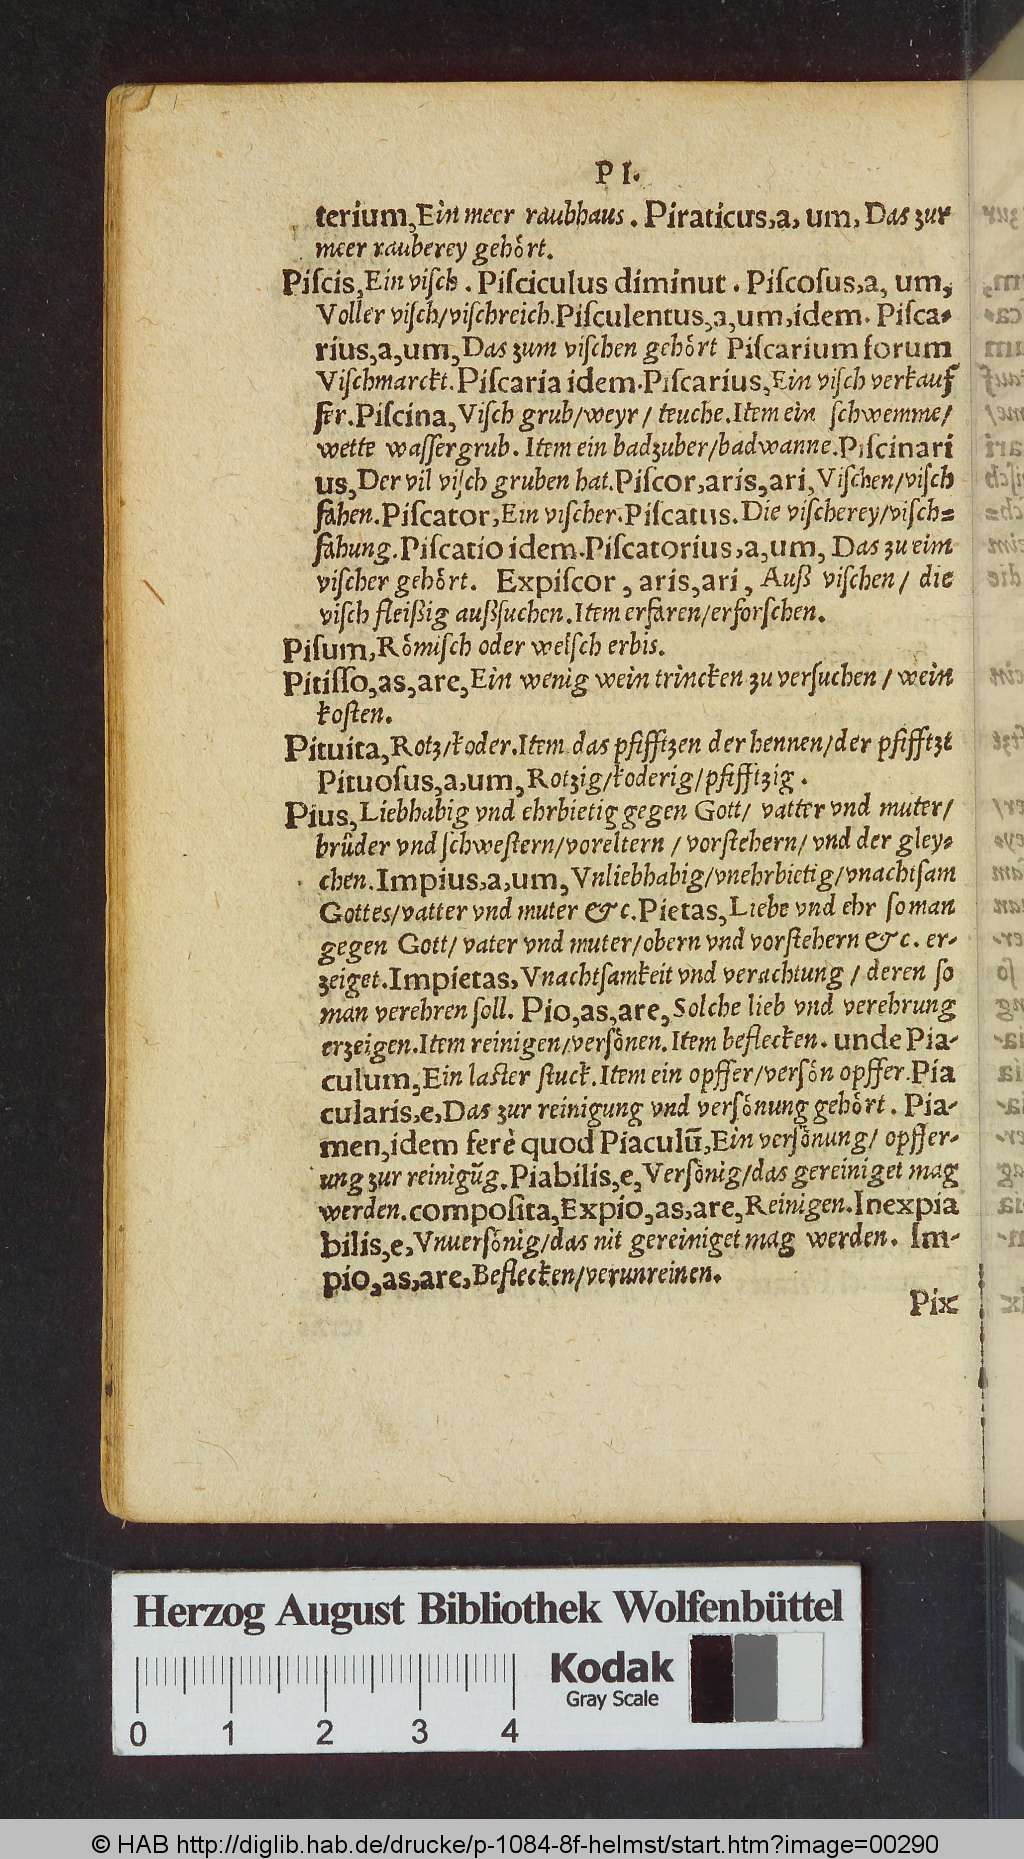 P I.
terium, Ein meer raubhaus. Piraticus, a, um, Das zur
meer rauberey gehört.
Piſcis, Ein viſch. Piſciculus diminut. Piſcoſus, a, um,
Voller viſch/viſchreich. Piſculentus, a, um, idem. Piſca-
rius, a, um, Das zum viſchen gehört Piſcarium forum
Viſchmarckt. Piſcaria idem. Piſcarius, Ein viſch verkauf
fer. Piſcina, Viſch grub/weyr/ teuche. Item ein ſchwemme/
wette waſſergrub. Item ein badzuber/badwanne. Piſcinari
us, Der vil viſch gruben hat. Piſcor, aris, ari, Viſchen/viſch
fahen. Piſcator, Ein viſcher. Piſcatus. Die viſcherey/viſch=
fahung. Piſcatio idem. Piſcatorius, a, um, Das zu eim
viſcher gehört. Expiſcor, aris, ari, Auß viſchen/ die
viſch fleißig außſuchen. Item erfaren/erforſchen.
Piſum, Römiſch oder welſch erbis.
Pitiſſo, as, are, Ein wenig wein trincken zu verſuchen/ wein
koſten.
Pituita, Rotz/koder. Item das pfifftzen der hennen/der pfifftzt
Pituoſus, a, um, Rotzig/koderig/pfifftzig.
Pius, Liebhabig vnd ehrbietig gegen Gott/ vatter vnd muter/
brůder vnd ſchweſtern/voreltern/ vorſtehern/ vnd der gley-
chen. Impius, a, um, Vnliebhabig/vnehrbietig/vnachtſam
Gottes/vatter vnd muter &c. Pietas, Liebe vnd ehr ſo man
gegen Gott/ vater vnd muter/obern vnd vorſtehern &c. er-
zeiget. Impietas, Vnachtſamkeit vnd verachtung/ deren ſo
man verehren ſoll. Pio, as, are, Solche lieb vnd verehrung
erzeigen. Item reinigen/verſönen. Item beflecken. unde Pia-
culum, Ein laſter ſtuck. Item ein opffer/verſön opffer. Pia
cularis, e, Das zur reinigung vnd verſönung gehört. Pia-
men, idem ferè quod Piaculũ, Ein verſönung/ opffer-
ung zur reinigũg. Piabilis, e, Verſönig/das gereiniget mag
werden. compoſita, Expio, as, are, Reinigen. Inexpia
bilis, e, Vnuerſönig/das nit gereiniget mag werden. Im-
pio, as, are, Beflecken/verunreinen.
Pix
Herzog August Bibliothek Wolfenbüttel
Kodak
Gray Scale
0 1 2 3 4
© HAB http://diglib.hab.de/drucke/p-1084-8f-helmst/start.htm?image=00290